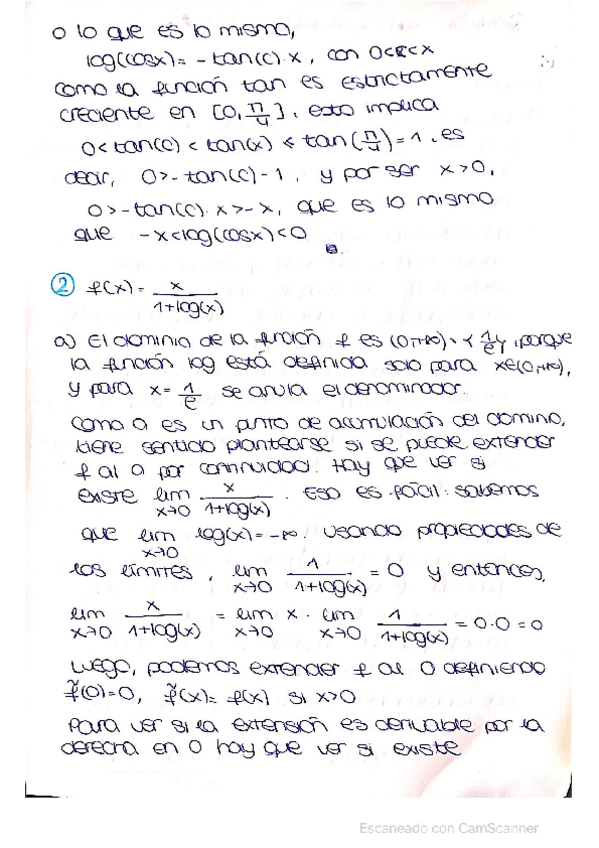 o lo que es lo mismo,
log(cosx) = - tan(c)·x, con 0<c<x
como la función tan es estrictamente
creciente en [0, π/4], esto implica
0 < tan(c) < tan(x) ≤ tan(π/4) = 1, es
decir, 0 > - tan(c) - 1, y por ser x > 0,
0 > - tan(c)·x > -x, que es lo mismo
que -x < log(cosx) < 0
② f(x) = x / 1+log(x)
a) El dominio de la función f es (0,+∞) \ {1/e}, porque
la función log está definida solo para x∈(0,+∞),
y para x = 1/e se anula el denominador.
Como 0 es un punto de acumulación del domino,
tiene sentido plantearse si se puede extender
f al 0 por continuidad. Hay que ver si
existe lim x→0 x / 1+log(x). Eso es fácil: sabemos
que lim x→0 log(x) = -∞. Usando propiedades de
los límites, lim x→0 1 / 1+log(x) = 0 y entonces,
lim x→0 x / 1+log(x) = lim x→0 x · lim x→0 1 / 1+log(x) = 0·0 = 0
Luego, podemos extender f al 0 definiendo
f̃(0)=0, f̃(x) = f(x) si x>0
Para ver si la extensión es derivable por la
derecha en 0 hay que ver si existe
Escaneado con CamScanner